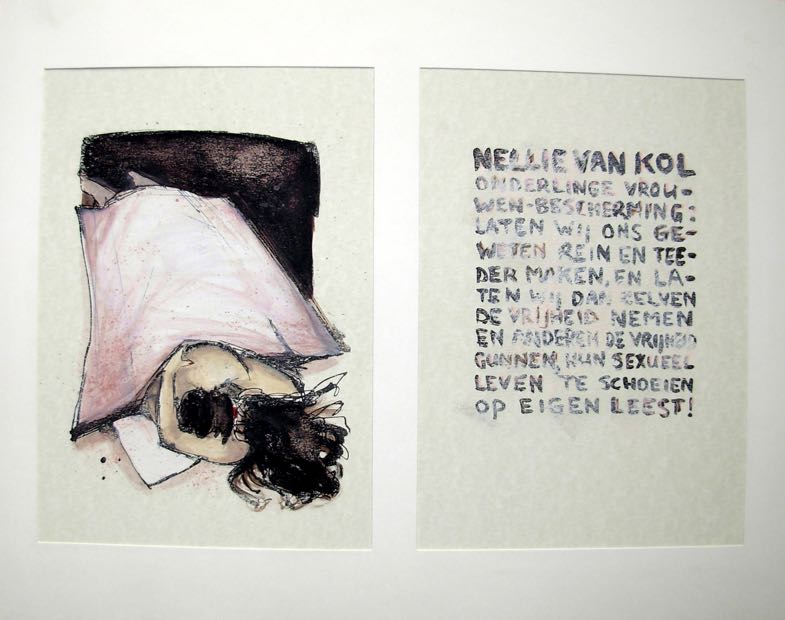 NELLIE VAN KOL
ONDERLINGE VROU-
WEN-BESCHERMING:
LATEN WIJ ONS GE-
WETEN REIN EN TEE-
DER MAKEN, EN LA-
TEN WIJ DAN ZELVEN
DE VRIJHEID NEMEN
EN ANDEREN DE VRIJHEID
GUNNEN, HUN SEXUEEL
LEVEN TE SCHOEIEN
OP EIGEN LEEST!